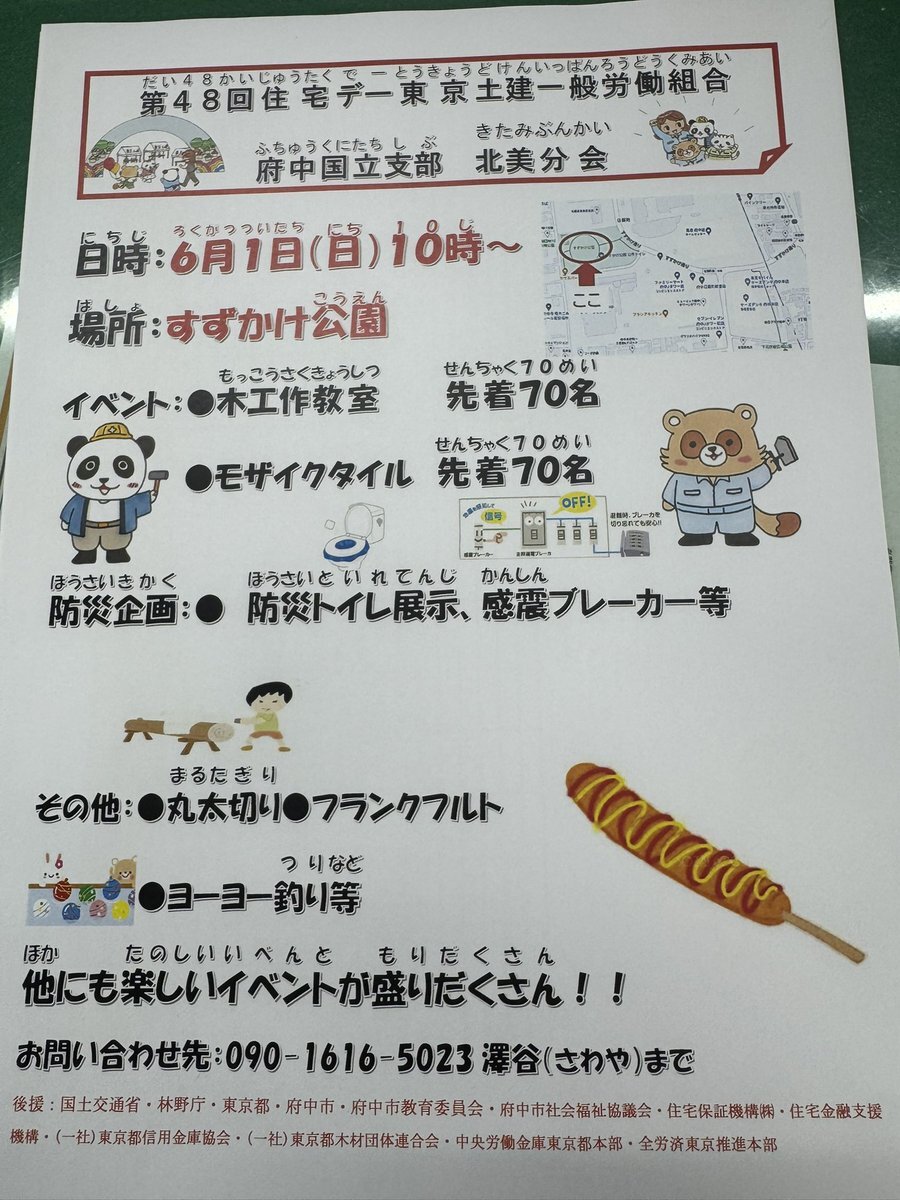 だい４８かいじゅうたく で ー とうきょうどけんいっぱんろうどうくみあい
第４８回住宅デー東京土建一般労働組合
ふちゅうくにたち し ぶ きたみぶんかい
府中国立支部 北美分会
にちじ ろくがつついたち にち １０じ
日時：6月1日(日)10時～
ばしょ こうえん
場所：すずかけ公園
ここ
もっこうさくきょうしつ せんちゃく７０めい
イベント：●木工作教室 先着70名
せんちゃく７０めい
●モザイクタイル 先着70名
信号
OFF!
感震ブレーカー
避難時、ブレーカを
切り忘れても安心!!
ぼうさいきかく ぼうさいといれてんじ かんしん
防災企画：● 防災トイレ展示、感震ブレーカー等
まるたぎり
その他：●丸太切り●フランクフルト
つりなど
●ヨーヨー釣り等
ほか たのしいいべんと もりだくさん
他にも楽しいイベントが盛りだくさん！！
お問い合わせ先：090-1616-5023 澤谷(さわや)まで
後援：国土交通省・林野庁・東京都・府中市・府中市教育委員会・府中市社会福祉協議会・住宅保証機構㈱・住宅金融支援
機構・(一社)東京都信用金庫協会・(一社)東京都木材団体連合会・中央労働金庫東京都本部・全労済東京推進本部